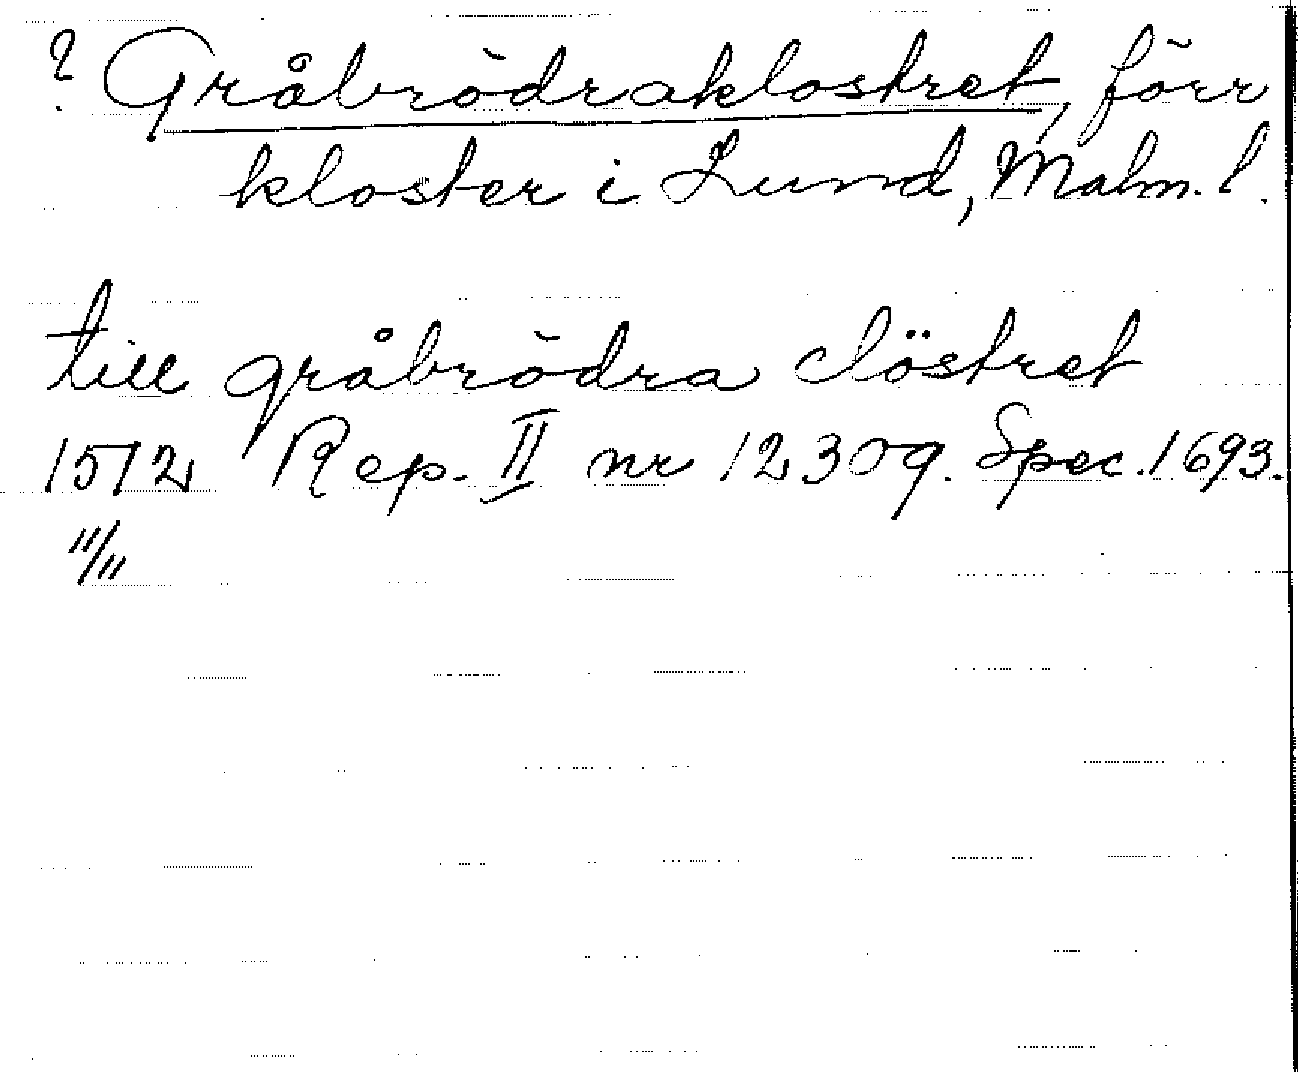 ? Gråbrödraklostret, förr
kloster i Lund, Malm. l.
till gråbrödra clöstret
1512 Rep. II nr 12309. Spec. 1693.
11/11